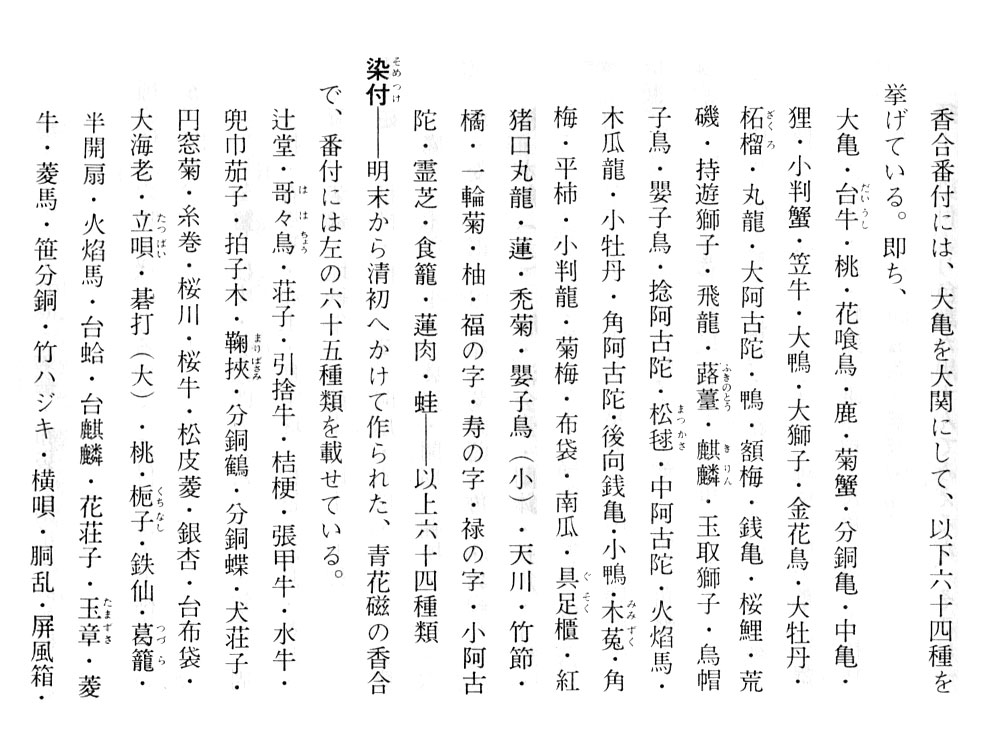 香合番付には、大亀を大関にして、以下六十四種を
挙げている。即ち、
大亀・台牛・桃・花喰鳥・鹿・菊蟹・分銅亀・中亀・
狸・小判蟹・笠牛・大鴨・大獅子・金花鳥・大牡丹・
柘榴・丸龍・大阿古陀・鴨・額梅・銭亀・桜鯉・荒
磯・持遊獅子・飛龍・蕗薹・麒麟・玉取獅子・烏帽
子鳥・嬰子鳥・捻阿古陀・松毬・中阿古陀・火焔馬・
木瓜龍・小牡丹・角阿古陀・後向銭亀・小鴨・木菟・角
梅・平柿・小判龍・菊梅・布袋・南瓜・具足櫃・紅
猪口丸龍・蓮・禿菊・嬰子鳥（小）・天川・竹節・
橘・一輪菊・柚・福の字・寿の字・禄の字・小阿古
陀・霊芝・食籠・蓮肉・蛙――以上六十四種類
染付――明末から清初へかけて作られた、青花磁の香合
で、番付には左の六十五種類を載せている。
辻堂・哥々鳥・荘子・引捨牛・桔梗・張甲牛・水牛・
兜巾茄子・拍子木・鞠挾・分銅鶴・分銅蝶・犬荘子・
円窓菊・糸巻・桜川・桜牛・松皮菱・銀杏・台布袋・
大海老・立唄・碁打（大）・桃・梔子・鉄仙・葛籠・
半開扇・火焔馬・台蛤・台麒麟・花荘子・玉章・菱
牛・菱馬・笹分銅・竹ハジキ・横唄・胴乱・屏風箱・